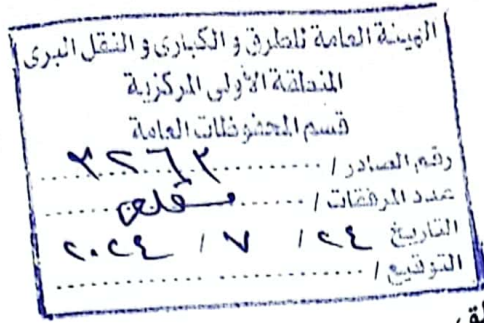 الهيئة العامة للطرق و الكبارى و النقل البرى
المنطقة الأولى المركزية
قسم المحفوظات العامة
رقم الصادر /
عدد المرفقات /
التاريخ ٢٤ / ٧ / ٢٠٢٤
التوقيع /